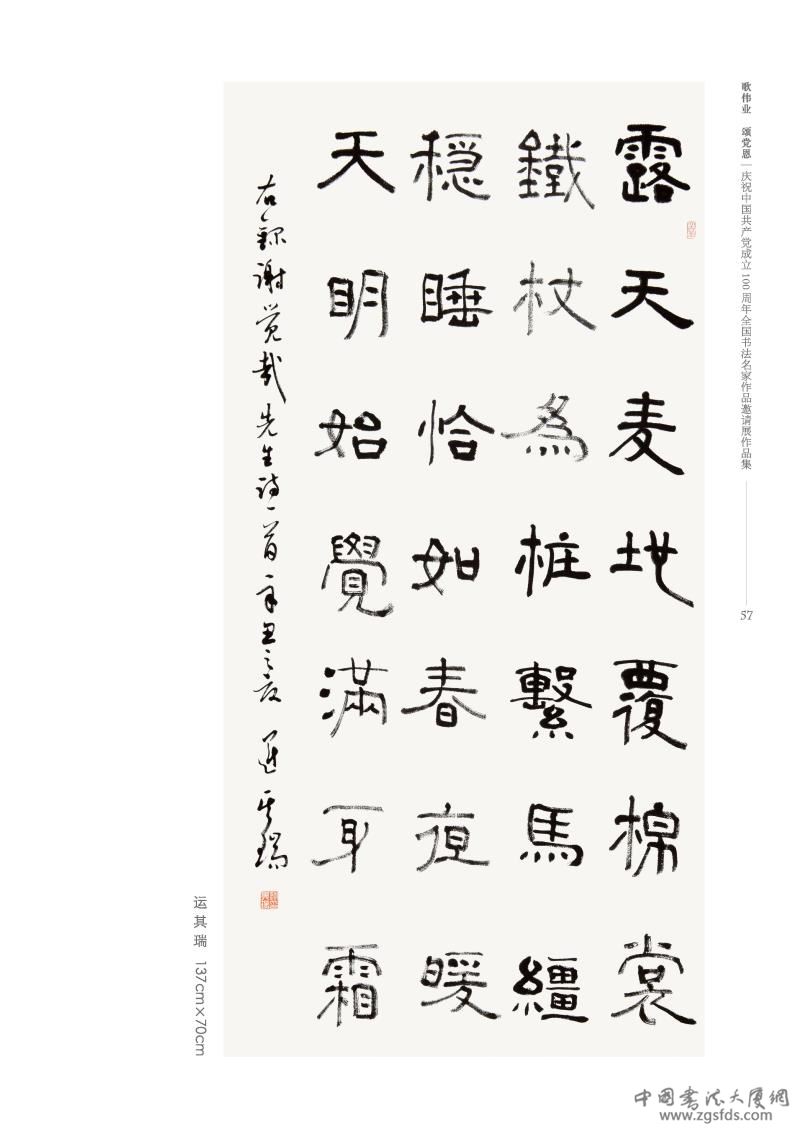 歌伟业 颂党恩 | 庆祝中国共产党成立100周年全国书法名家作品邀请展作品集
57
露天麦地覆棉裳
鐵杖為桩繫馬韁
穏睡恰如春夜暖
天明始覺满身霜
右録谢觉哉先生诗一首辛丑之夏 运其瑞
运其瑞 137cm×70cm
中国书法大厦網
www.zgsfds.com